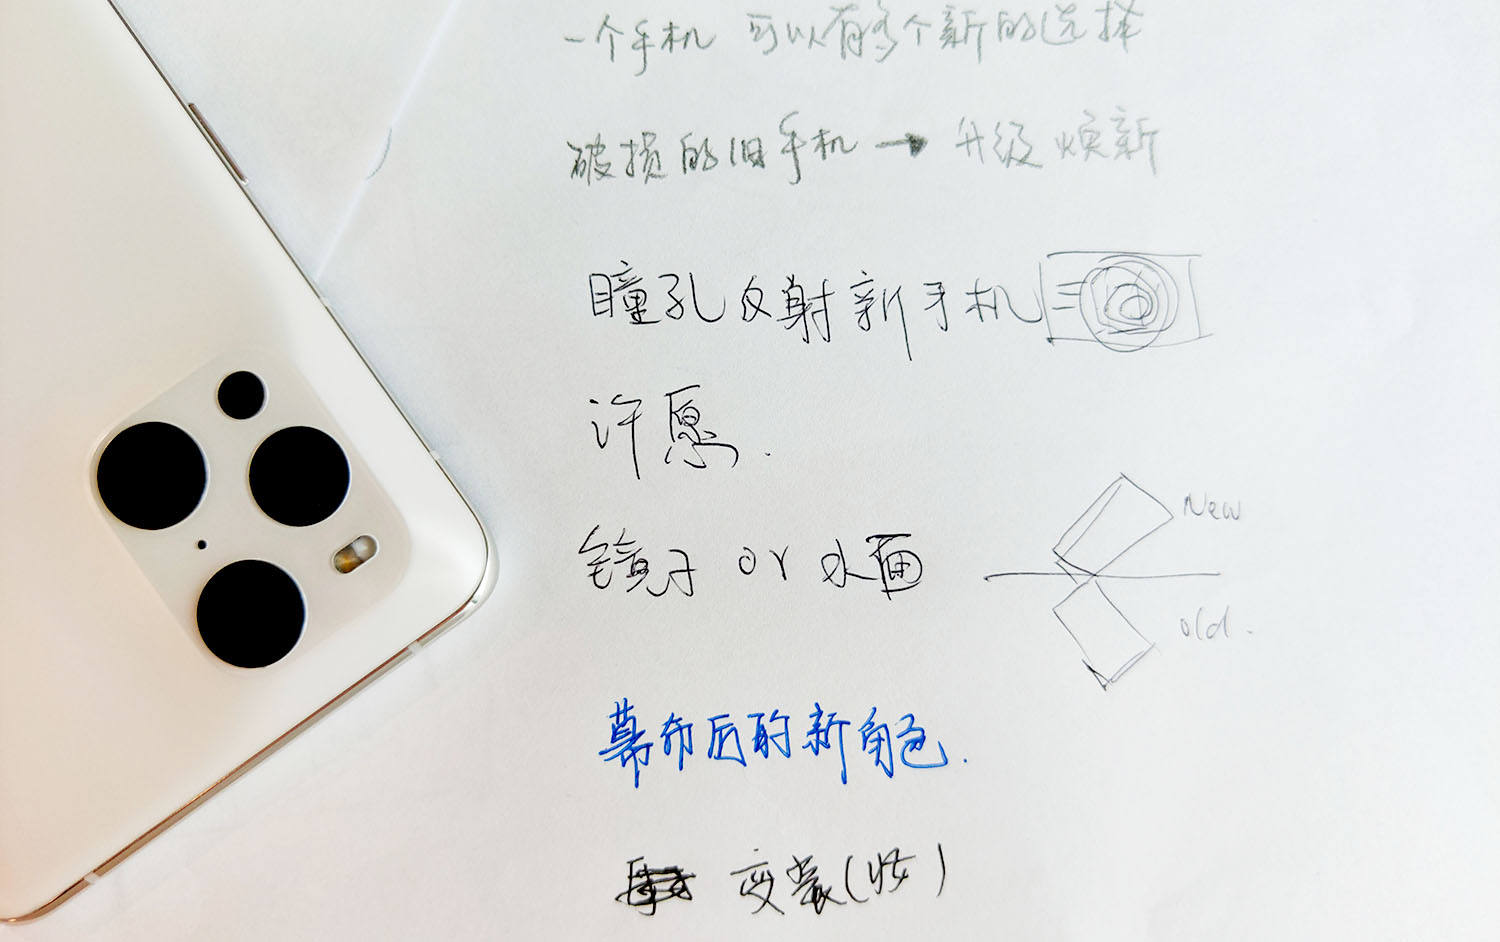 一个手机 可以有多个新的选择
破损的旧手机 → 升级焕新
瞳孔反射新手机
许愿.
镜子 or 水面
New
old.
幕布后的新角色.
变装(妆)